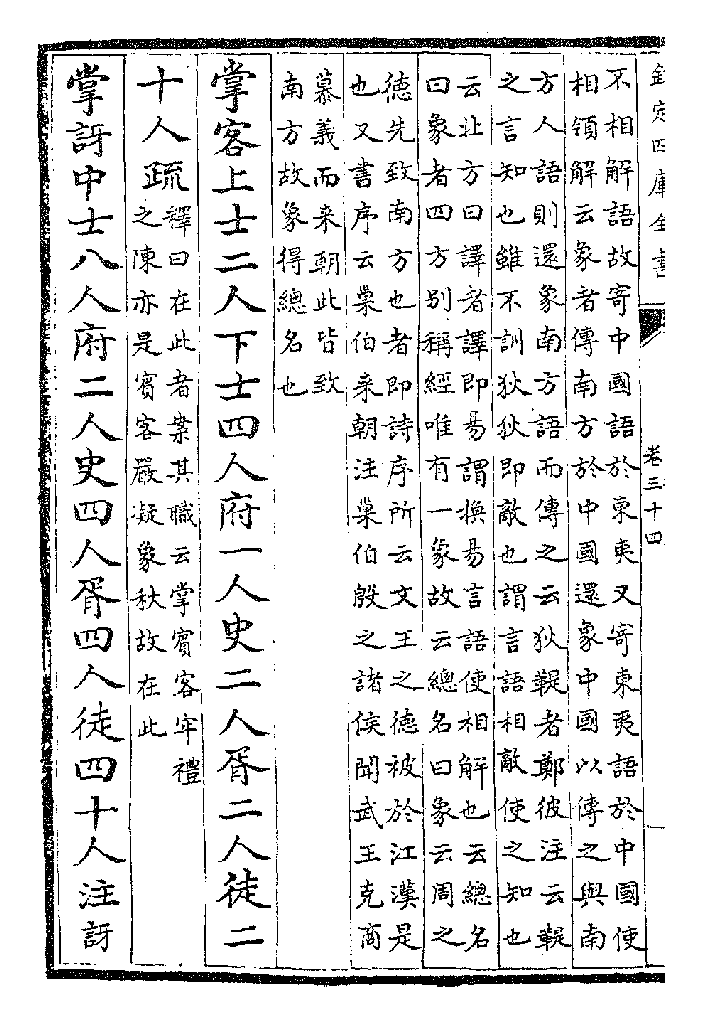 欽定四庫全書
卷三十四
不相解語故寄中國語於東夷又寄東夷語於中國使
相領解云象者傳南方於中國還象中國以傳之與南
方人語則還象南方語而傳之云狄鞮者鄭彼注云鞮
之言知也雖不訓狄狄即敵也謂言語相敵使之知也
云北方曰譯者譯即易謂換易言語使相解也云總名
曰象者四方别稱經唯有一象故云總名曰象云周之
德先致南方也者即詩序所云文王之德被於江漢是
也又書序云巢伯来朝注巢伯殷之諸侯聞武王克商
慕義而来朝此皆致
南方故象得總名也
掌客上士二人下士四人府一人史二人胥二人徒二
十人疏
釋曰在此者案其職云掌賓客牢禮
之陳亦是賓客嚴凝象秋故在此
掌訝中士八人府二人史四人胥四人徒四十人注訝